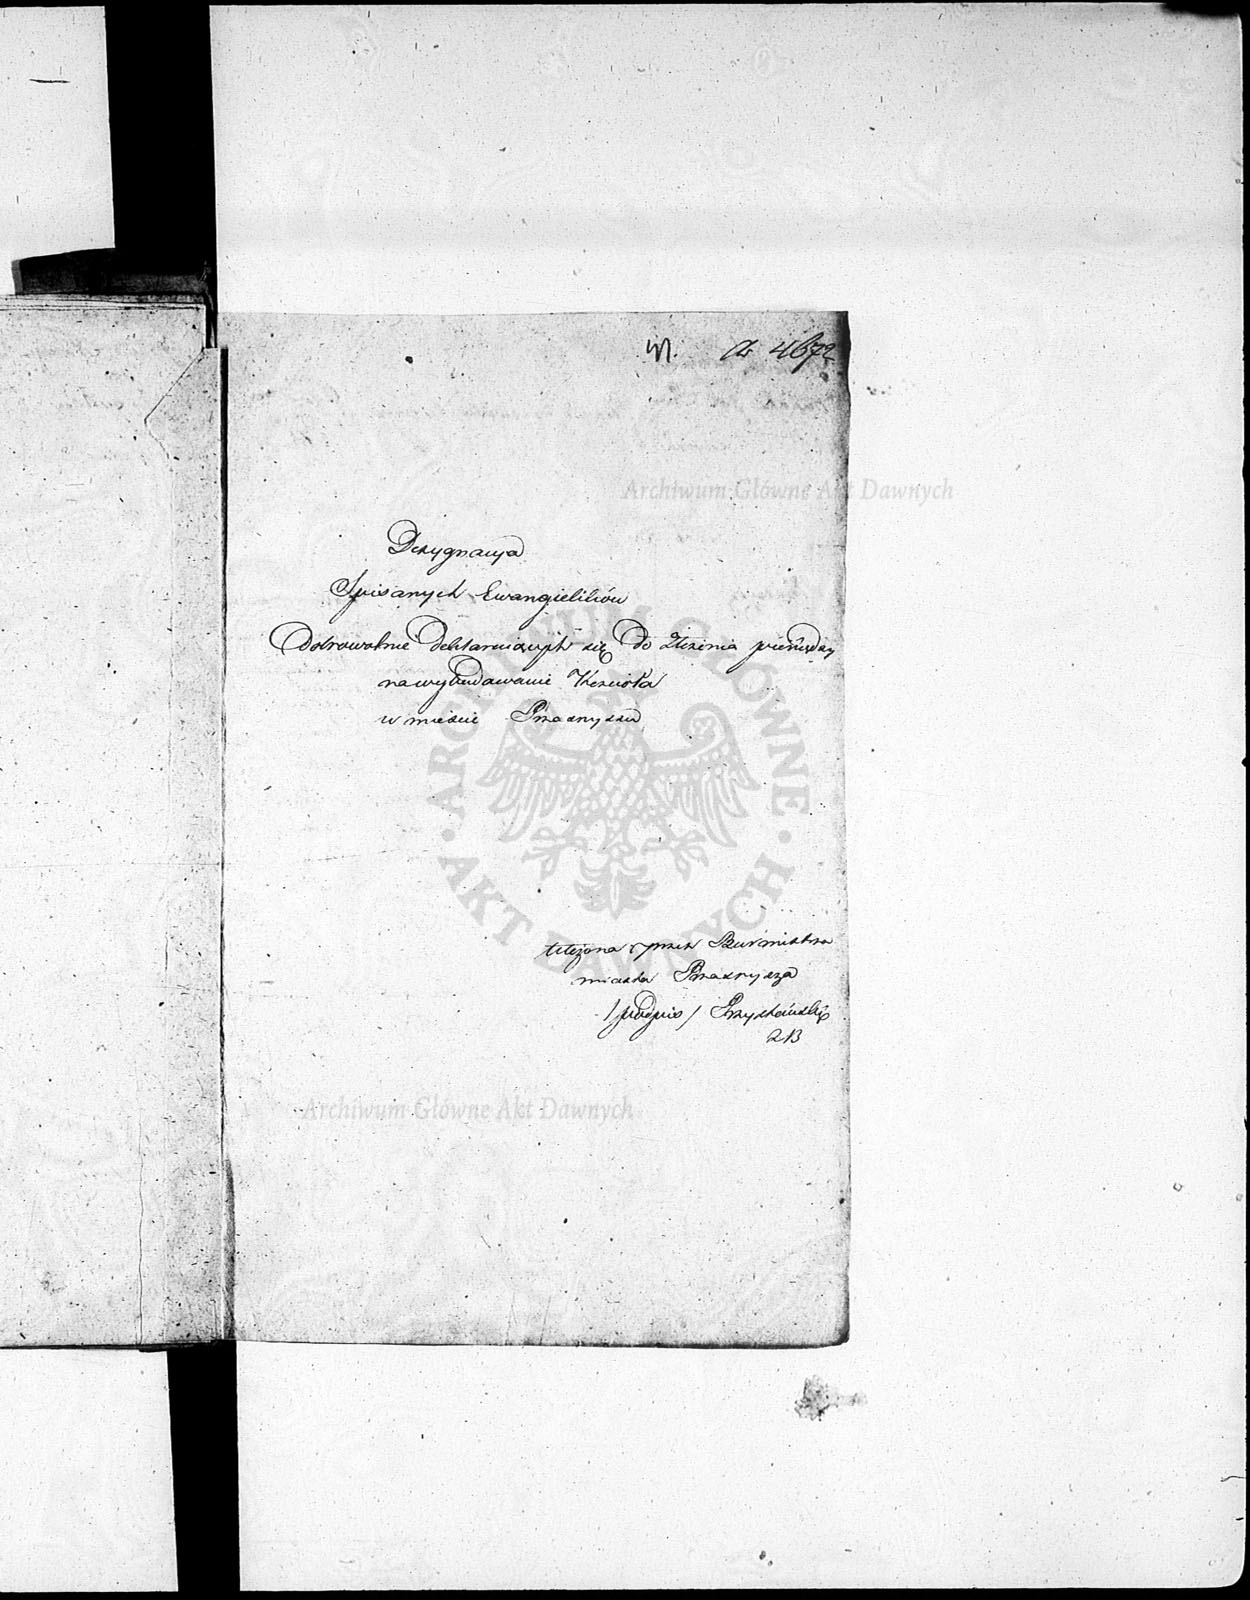 N. 4672
Archiwum Główne Akt Dawnych
Dezygnacya
Spisanych Ewangielików
Dobrowolnie deklaruiących się do złożenia pieniędzy
na wybudowanie Kościoła
w mieście Przasnyszu
ARCHIWUM GŁÓWNE
AKT DAWNYCH
ułożona przez Burmistrza
miasta Przasnysza
/podpis/ Przystański
Archiwum Główne Akt Dawnych